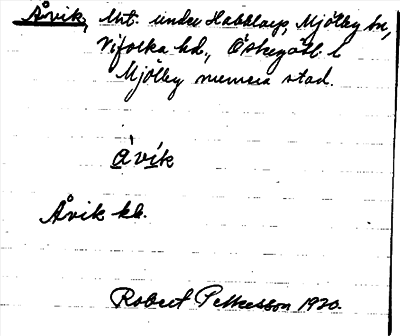 Åvik, lht. under Habblarp, Mjölby sn,
Vifolka hd., Östergötl. l
Mjölby numera stad.
å`vi´k
Åvik kb.
Robert Pettersson 1920.